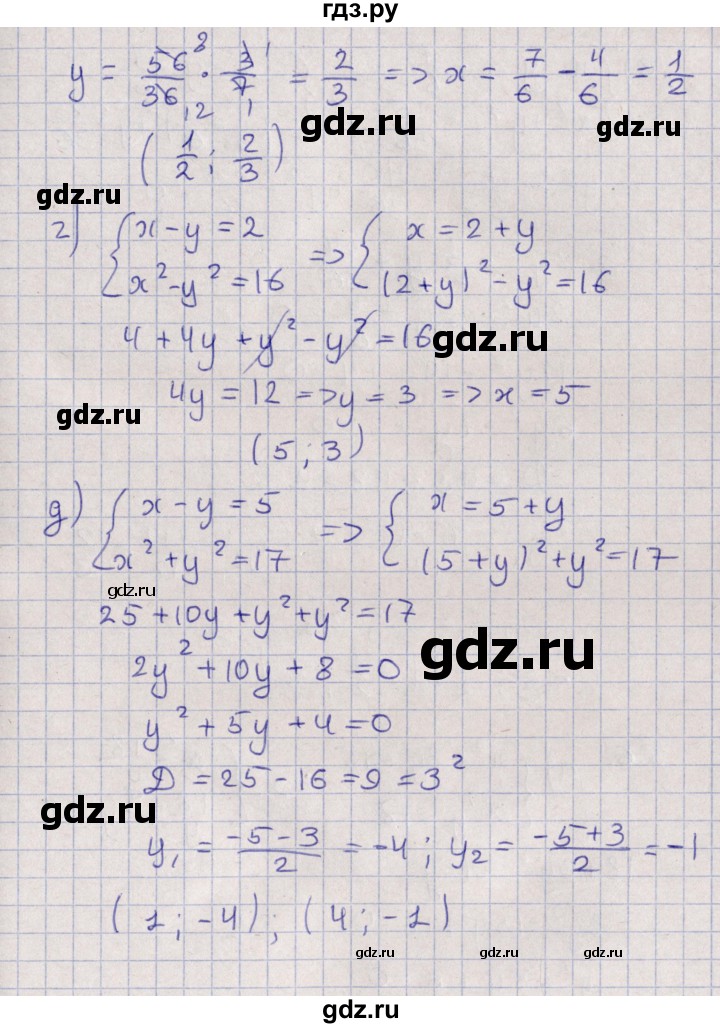 гдз.ру
y = 56/36 · 3/7 = 2/3 => x = 7/6 - 4/6 = 1/2
8 1
12 1
gdz.ru
(1/2 ; 2/3)
gdz.ru
г) { x - y = 2 => { x = 2 + y
x² - y² = 16 (2 + y)² - y² = 16
4 + 4y + y² - y² = 16
gdz.ru
4y = 12 => y = 3 => x = 5
gdz.ru
(5 ; 3)
д) { x - y = 5 => { x = 5 + y
x² + y² = 17 (5 + y)² + y² = 17
gdz.ru
25 + 10y + y² + y² = 17
gdz.ru
2y² + 10y + 8 = 0
y² + 5y + 4 = 0
Д = 25 - 16 = 9 = 3²
gdz.ru
y₁ = (-5 - 3)/2 = -4 ; y₂ = (-5 + 3)/2 = -1
(1 ; -4) ; (4 ; -1)
gdz.ru gdz.ru gdz.ru
gdz.ru